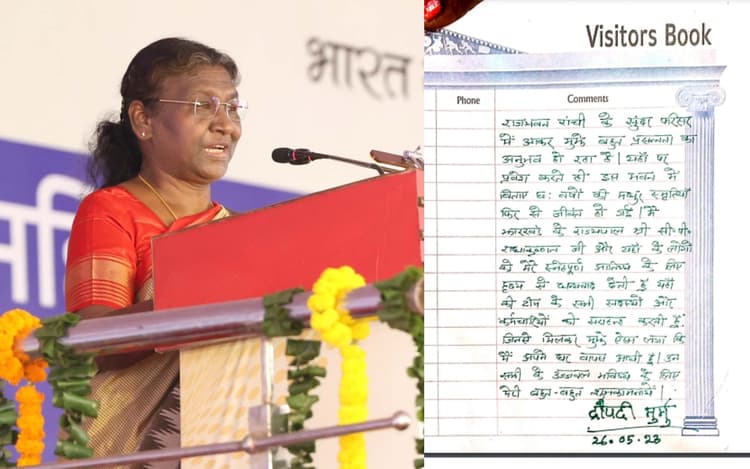 भारत
Visitors Book
Phone
Comments
राजभवन रांची के सुंदर परिसर
में आकर मुझे बहुत प्रसन्नता का
अनुभव हो रहा है। यहाँ पर
प्रवेश करते ही इस भवन में
बिताए छः वर्षों की मधुर स्मृतियाँ
फिर से जीवंत हो गई। मैं
झारखंड के राज्यपाल श्री सी.पी.
राधाकृष्णन जी और यहाँ के लोगों
को मेरे स्नेहपूर्ण आतिथ्य के लिए
हृदय से धन्यवाद देती हूं यहाँ
की टीम के सभी सदस्यों और
कर्मचारियों की सराहना करती हूँ
जिनसे मिलकर मुझे ऐसा लगा कि
मैं अपने घर वापस आयी हूं। उन
सभी के उज्ज्वल भविष्य के लिए
मेरी बहुत-बहुत शुभकामनायें।
द्रौपदी मुर्मु
26.05.23